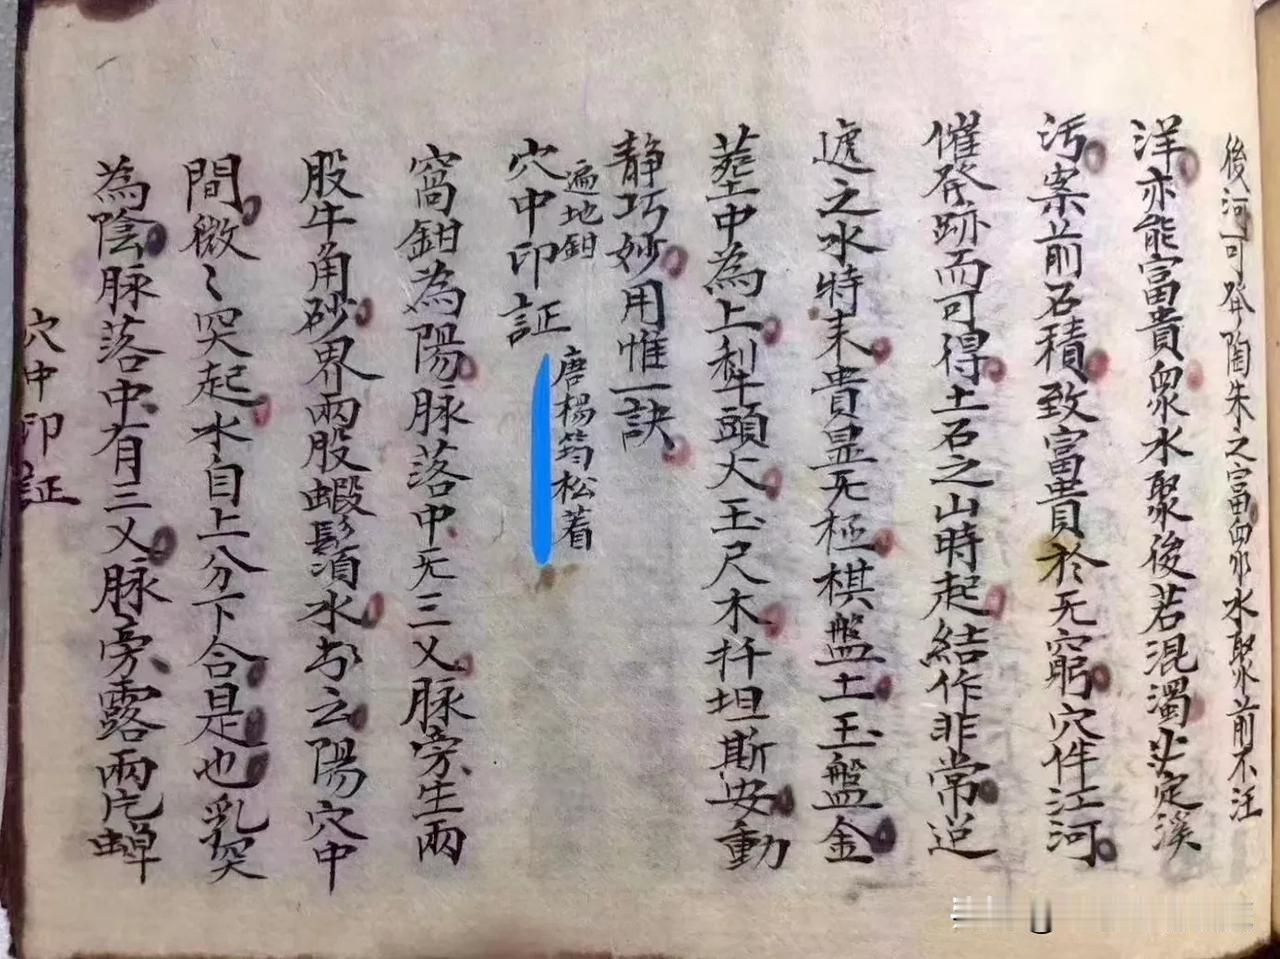 後河可發陶朱之富衆水聚前不汪
洋亦能富貴衆水聚後若混濁必定溪
污案前石積致富貴於无窮穴件江河
催發跡而可得土石之山時起結作非常逆
遮之水特未貴显无極棋盤土玉盤金
塟中為上犁頭火玉尺木扦坦斯安動
静巧妙用惟一訣
遍地鉗
穴中印証
唐楊筠松着
窩鉗為陽脉落中无三乂脉旁生兩
股牛角砂界兩股蝦鬚水故云陽穴中
間微〻突起水自上分下合是也乳突
為陰脉落中有三乂脉旁露兩片蟬
穴中印証